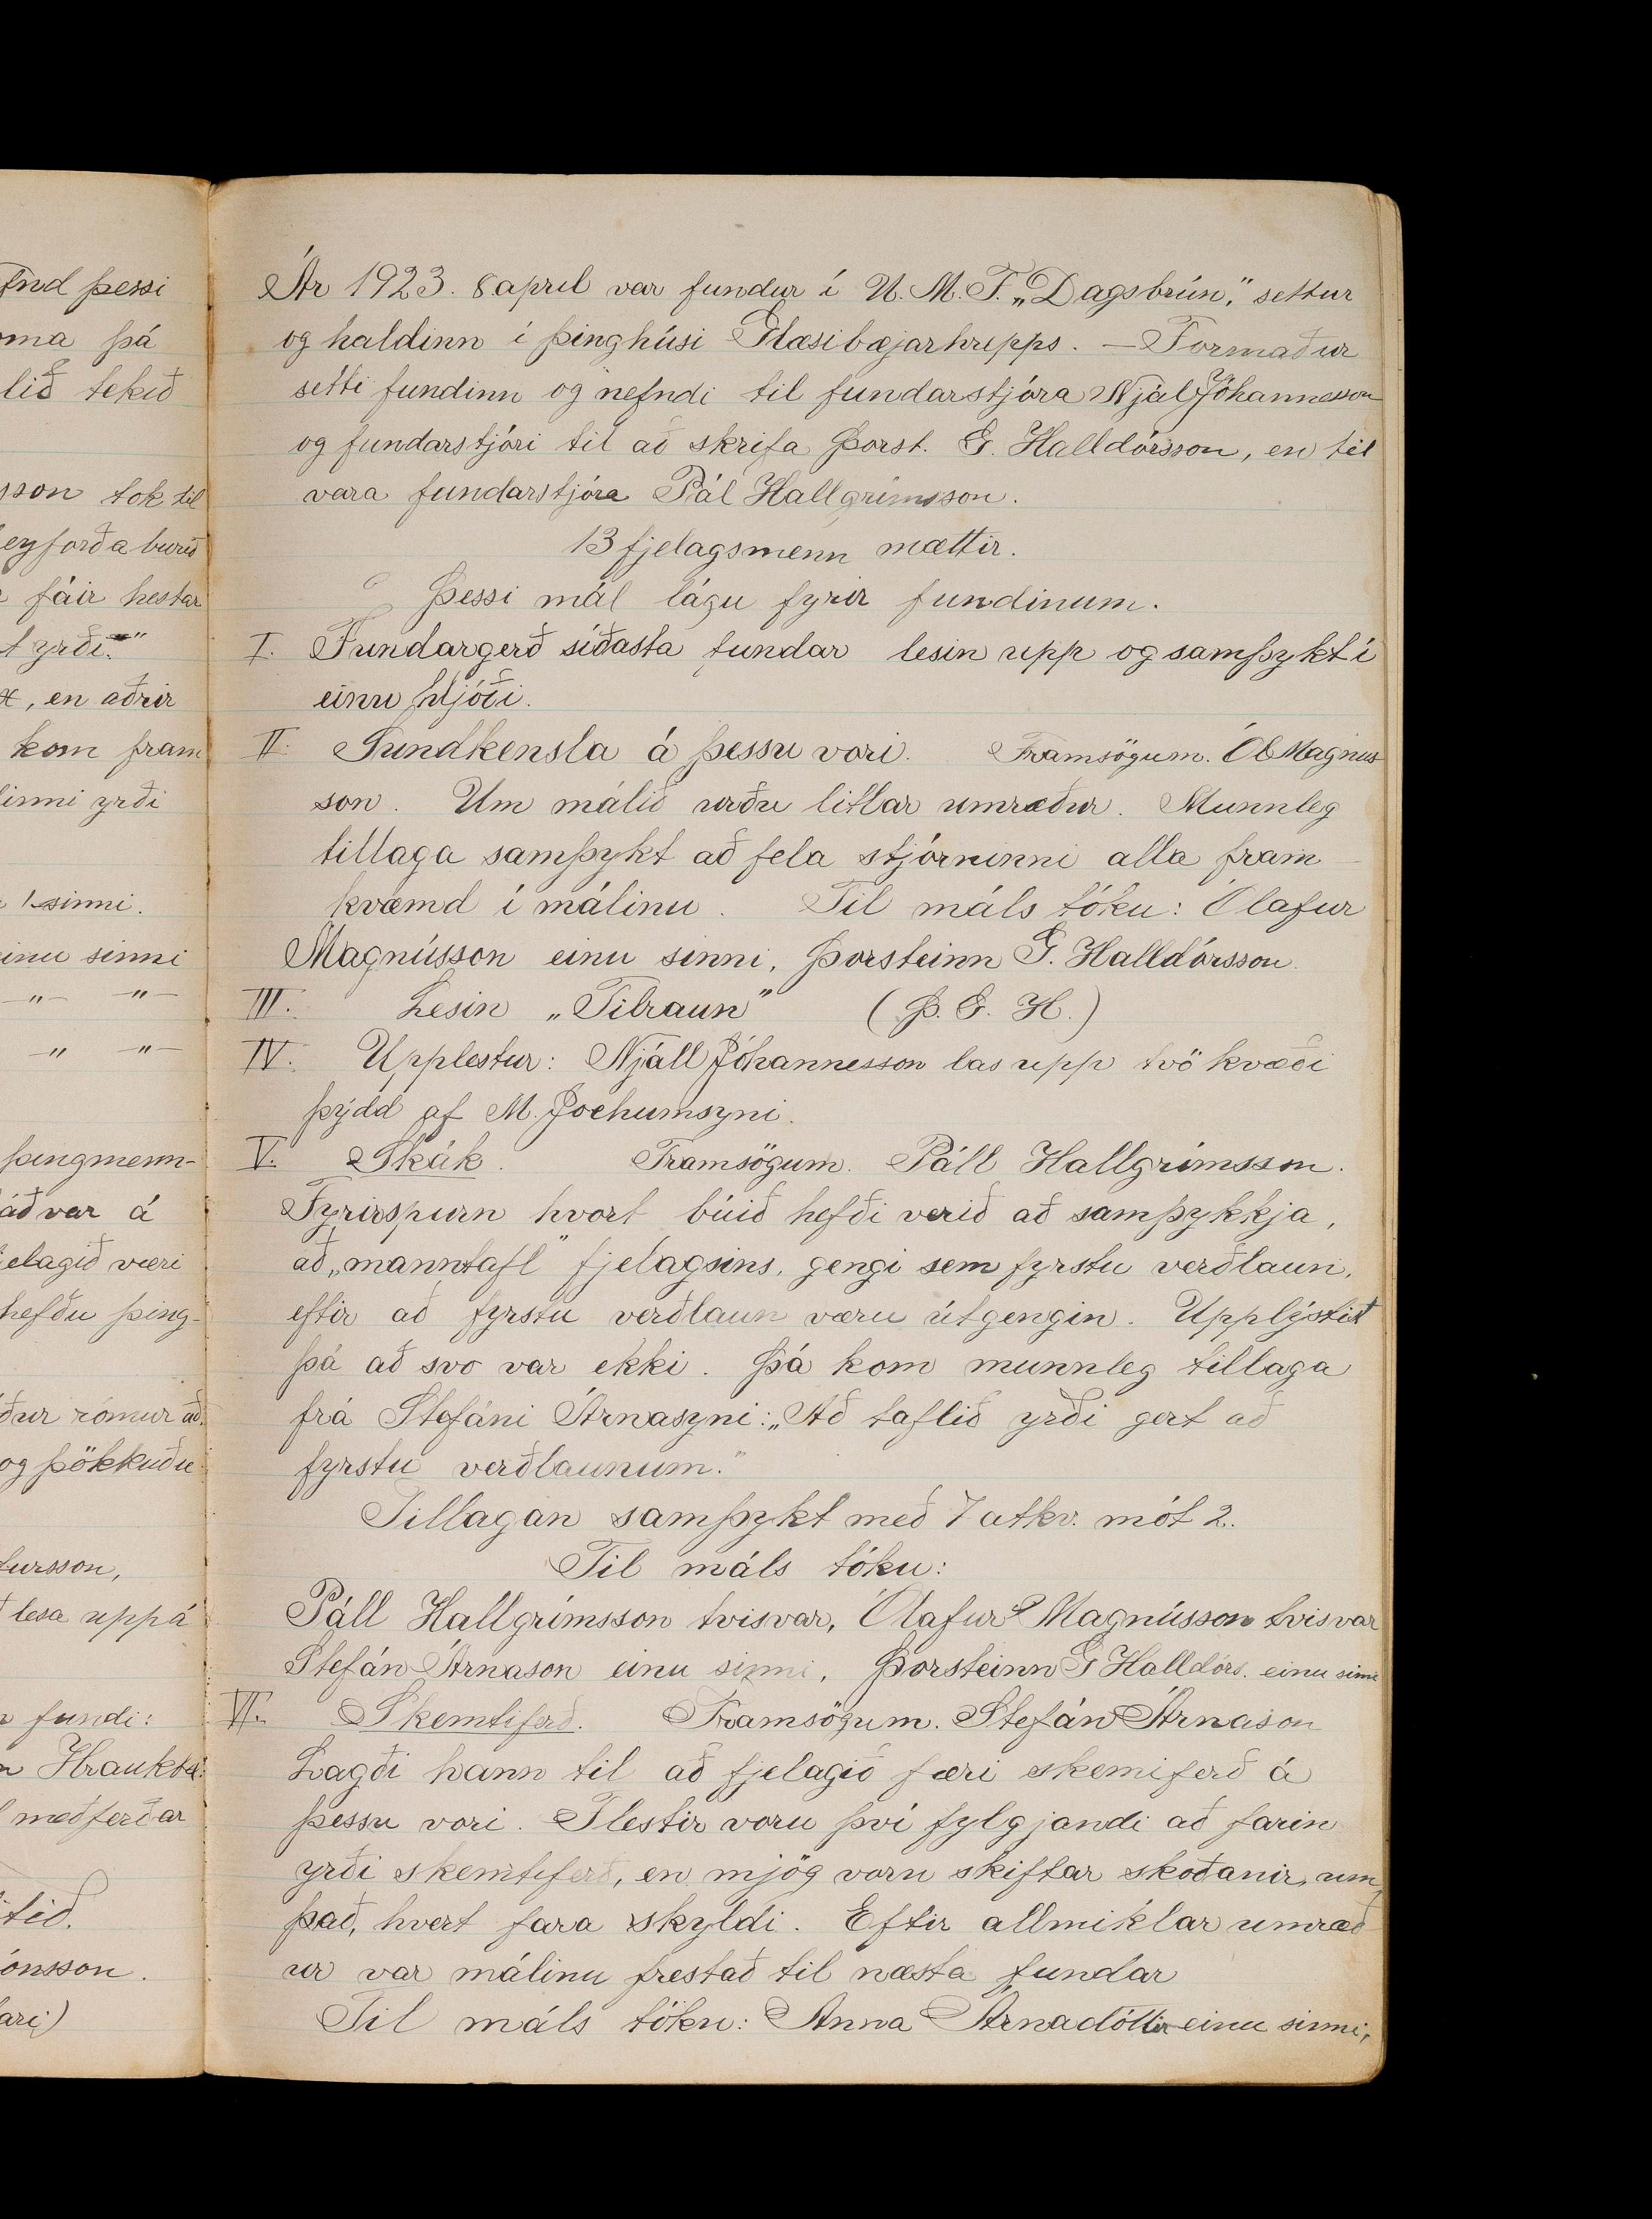 fnd þessi
oma þá
lið tekið
sson tok til
eyforða burið
fáir hestar
t yrði."
, en aðrir
kom fram
linni yrði
1 sinni.
inu sinni
—"— —"—
—"— —"—
þingmenn-
áð var á
jelagið væri
hefðu þing-
ður rómur að
og þökkuðu
fursson,
lesa upp á
fundi:
Hraukbæ.
meðferðar
tið.
ónsson.
ari)
Ár 1923. 8. apríl var fundur í U. M. F. „Dagsbrún," settur
og haldinn í þinghúsi Glæsibæjarhrepps. — Formaður
setti fundinn og nefndi til fundarstjóra Njál Jóhannesson
og fundarstjóri til að skrifa Þorst. G. Halldórsson, en til
vara fundarstjóra Pál Hallgrímsson.
13 fjelagsmenn mættir.
Þessi mál lágu fyrir fundinum.
I. Fundargerð síðasta fundar lesin upp og samþykt í
einu hljóði.
II. Sundkensla á þessu vori. Framsögum. Ól Magnús
son. Um málið urðu litlar umræður. Munnleg
tillaga samþykt að fela stjórninni alla fram
kvæmd í málinu. Til máls tóku: Ólafur
Magnússon einu sinni, Þorsteinn G. Halldórsson.
III. Lesin „Tilraun" (Þ. G. H.)
IV. Upplestur: Njáll Jóhannesson las upp tvö kvæði
þýdd af M. Jochumsyni.
V. Skák. Framsögum. Páll Hallgrímsson.
Fyrirspurn hvort búið hefði verið að samþykkja,
að „manntafl" fjelagsins, gengi sem fyrstu verðlaun,
eftir að fyrstu verðlaun væru útgengin. Upplýstist
þá að svo var ekki. Þá kom munnleg tillaga
frá Stefáni Árnasyni: „Að taflið yrði gert að
fyrstu verðlaunum."
Tillagan samþykt með 7 atkv. mót 2.
Til máls tóku:
Páll Hallgrímsson tvisvar, Ólafur Magnússon tvisvar
Stefán Árnason einu sinni, Þorsteinn G Halldórs. einu sinni
VI. Skemtiferð. Framsögum. Stefán Árnason
Lagði hann til að fjelagið færi skemiferð á
þessu vori. Flestir voru því fylgjandi að farin
yrði skemtiferð, en mjög voru skiftar skoðanir, um
það, hvert fara skyldi. Eftir allmiklar umræð
ur var málinu frestað til næsta fundar
Til máls tóku: Anna Árnadóttir einu sinni,